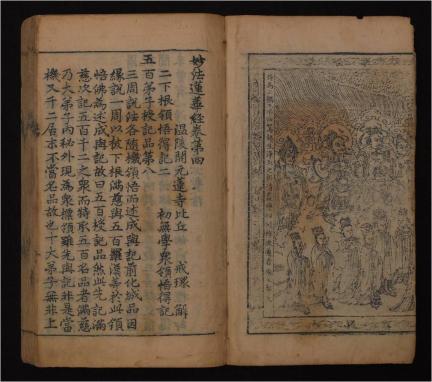 妙法蓮華經卷第四
溫陵開元蓮寺比丘 戒環 解
二下根領悟得記二 初無學衆領悟得記
五百弟子授記品第八
三周說法各隨機領悟而述成與記前化城品因
緣說一周以敎下根滿慈與五百羅漢等於此領
悟佛爲述成與記故曰五百授記品然此先記滿
慈次記五百千二之衆而特 五百名品者滿慈
乃大弟子內秘外現爲衆 領雖先與記非是當
機又千二居末不當名品故也十大弟子無非上